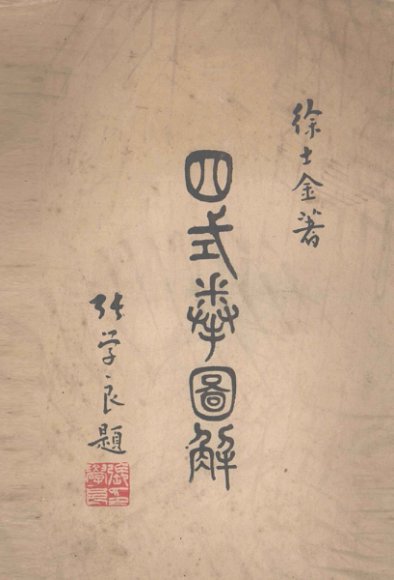 徐士金著
四式拳圖解
张学良題
張學良印